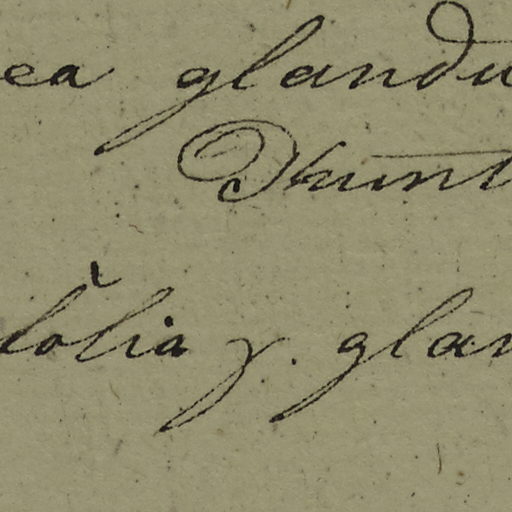 ea glandu
Thunt
folia γ. glan